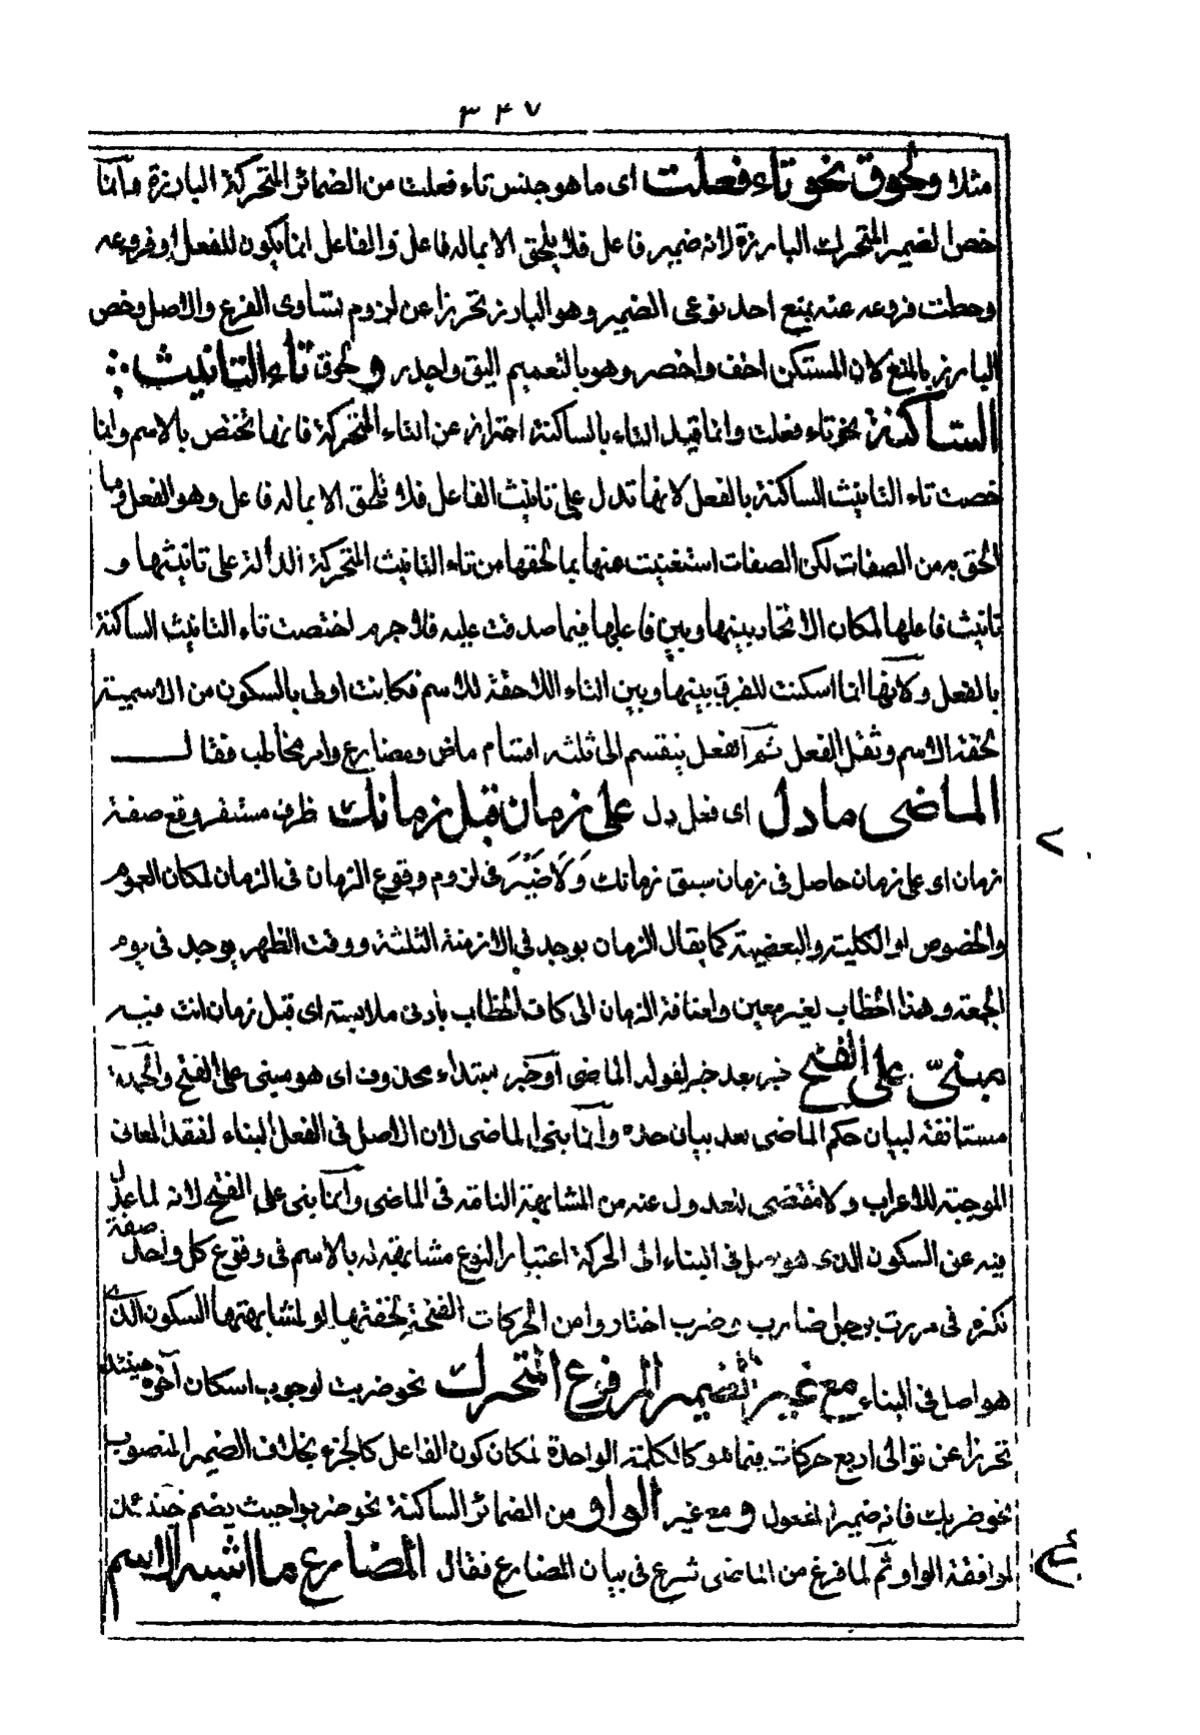 ٣٤٧
مثلا ولحوق نحو تاء فعلت اى ما هو جنس تاء فعلت من الضمائر المتحركة البارزة وانما
خص الضمير المتحرك البارزة لانه ضمير فاعل فلا يلحق الا بما له فاعل والفاعل انما يكون للفعل او فروعه
وحطت فروعه عنه بمنع احد نوعى الضمير وهو البارز تحرزا عن لزوم تساوى الفرع والاصل وخص
البارز بالمنع لان المستكن اخف واخصر وهو بالتعميم اليق واجدر ولحوق تاء التانيث
الساكنة نحو تاء فعلت وانما قيد التاء بالساكنة احترازا عن التاء المتحركة فانها تختص بالاسم وانما
خصت تاء التانيث الساكنة بالفعل لانها تدل على تانيث الفاعل فلا تلحق الا بما له فاعل وهو الفعل وما
الحق به من الصفات لكن الصفات استغنيت عنها بما لحقها من تاء التانيث المتحركة الدالة على تانيثها و
تانيث فاعلها لمكان الاتحاد بينها وبين فاعلها فيما صدقت عليه فلا جرم اختصت تاء التانيث الساكنة
بالفعل ولانها انما اسكنت للفرق بينها وبين التاء اللاحقة للاسم فكانت اولى بالسكون من الاسمية
لخفة الاسم وثقل الفعل ثم الفعل ينقسم الى ثلثة اقسام ماض ومضارع وامر مخاطب فقال
الماضى ما دل اى فعل دل على زمان قبل زمانك ظرف مستقر وقع صفة
زمان اى على زمان حاصل فى زمان سبق زمانك ولا ضير فى لزوم وقوع الزمان فى الزمان لمكان العموم
والخصوص او الكلية والبعضية كما يقال الزمان يوجد فى الازمنة الثلثة ووقت الظهر يوجد فى يوم
الجمعة وهذا الخطاب لغير معين واضافة الزمان الى كاف الخطاب بادنى ملابسة اى قبل زمان انت فيه
مبنىّ على الفتح خبر بعد خبر لقوله الماضى او خبر مبتداء محذوف اى هو مبنى على الفتح والجملة
مستانفة لبيان حكم الماضى بعد بيان حده وانما بنى الماضى لان الاصل فى الفعل البناء لفقد المعانى
الموجبة للاعراب ولا مقتضى لتعدول عنه من المشابهة التامة فى الماضى وانما بنى على الفتح لانه لما عدل
فيه عن السكون الذى هو اصل فى البناء الى الحركة اعتبارا لنوع مشابهته له بالاسم فى وقوع كل واحد صفة
نكرة فى مررت برجل ضارب وضرب اختاروا من الحركات الفتحة لخفتها او لمشابهتها السكون الذى
هو اصل فى البناء مع غير الضمير المرفوع المتحرك نحو ضربت لوجوب اسكان آخره حينئذ
تحرزا عن توالى اربع حركات فيما هو كالكلمة الواحدة لمكان كون الفاعل كالجزء بخلاف الضمير المنصوب
نحو ضربك فانه ضمير المفعول ومع غير الواو من الضمائر الساكنة نحو ضربوا حيث يضم حينئذ
لموافقة الواو ثم لما فرغ من الماضى شرع فى بيان المضارع فقال المضارع ما اشبه الاسم